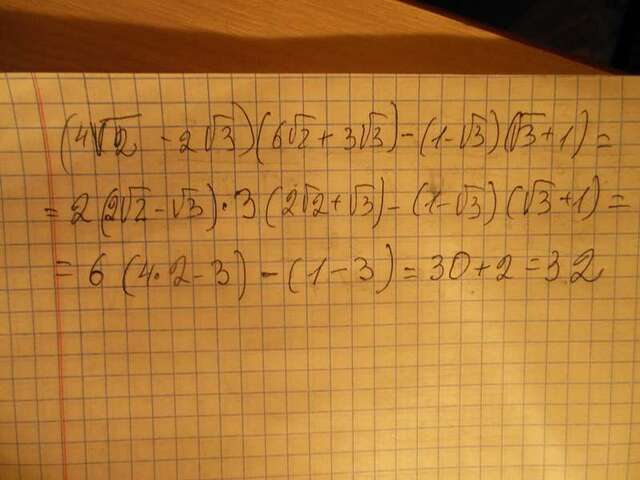 (4√2 - 2√3)(6√2 + 3√3) - (1-√3)(√3+1) =
= 2(2√2-√3)·3(2√2+√3) - (1-√3)(√3+1) =
= 6(4·2-3) - (1-3) = 30+2 = 32